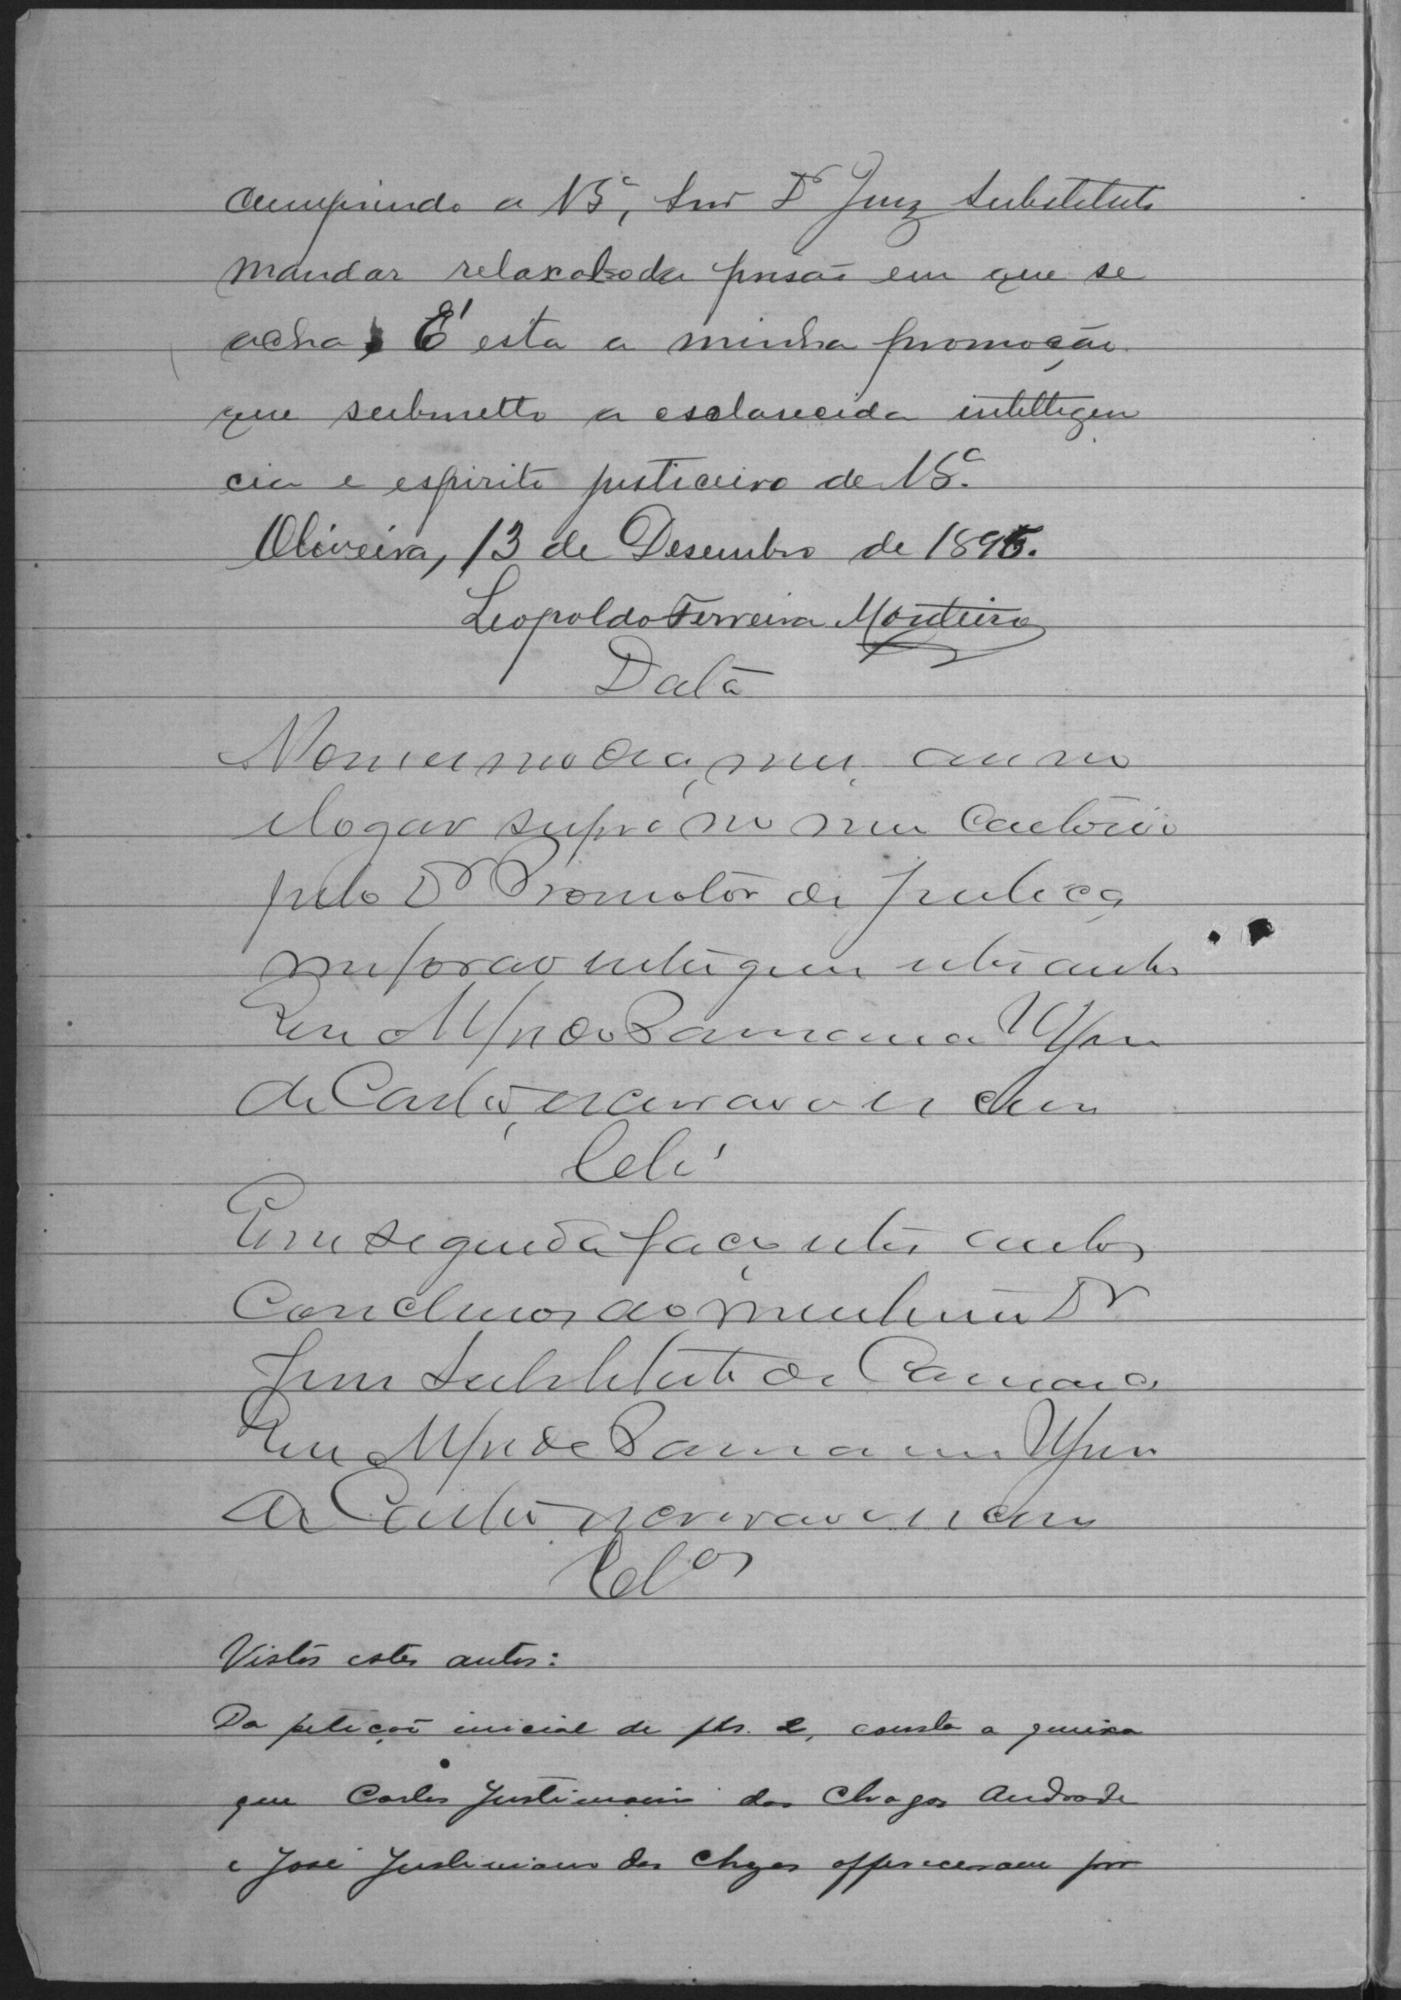 cumprindo a V S.ª, Snr Dr Juiz Substituto
mandar relaxal-o da prisão em que se
acha. É esta a minha promoção
que submetto a esclarecida intelligen
cia e espirito justiceiro de V S.ª
Oliveira, 13 de Desembro de 1895.
Leopoldo Ferreira Monteiro
Data
No mesmo dia, mez, anno
e logar supra no meu Cartorio
pelo Dr Promotor de Justiça
me forão entregues estes autos
Eu
de Castro, escrivão o escrevi
Cels
Em seguida faço estes autos
Conclusos ao meritissimo Dr
Juiz Substituto da Comarca
Eu
de Castro escrivão o escrevi
Clos
Vistos estes autos:
Da petição inicial de fls. 2, consta a queixa
que Carlos Justiniano das Chagas Andrade
e José Justiniano das Chagas offereceram por